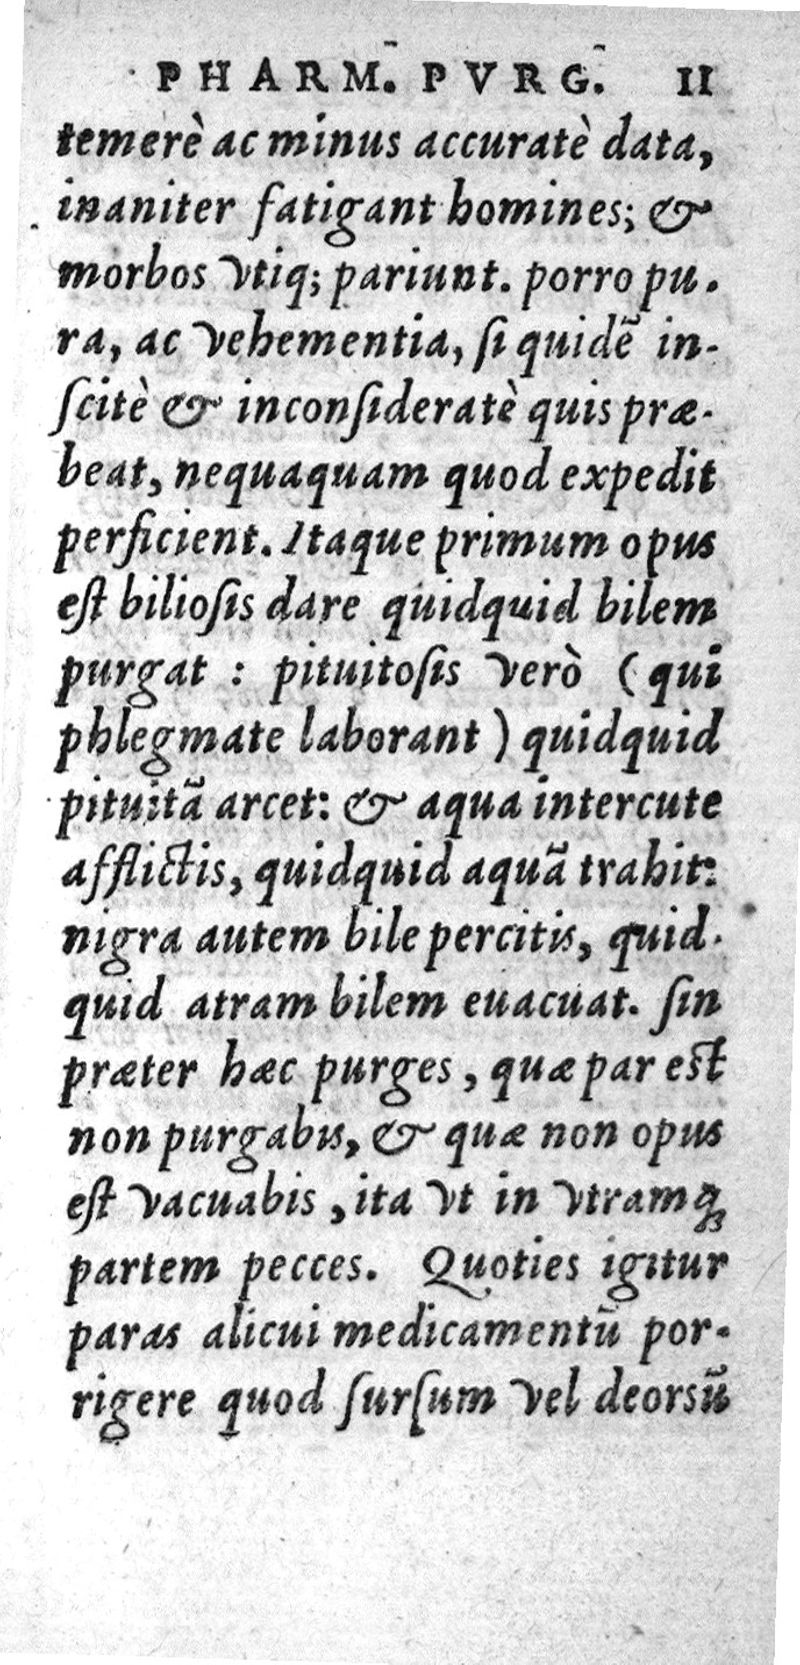 PHARM. PVRG. 11
temerè ac minus accuratè data,
inaniter fatigant homines; &
morbos vtiq; pariunt. porro pu-
ra, ac vehementia, ſi quidẽ in-
ſcitè & inconſideratè quis præ-
beat, nequaquam quod expedit
perficient. Itaque primum opus
eſt bilioſis dare quidquid bilem
purgat : pituitoſis verò (qui
phlegmate laborant) quidquid
pituitã arcet: & aqua intercute
afflictis, quidquid aquã trahit:
nigra autem bile percitis, quid-
quid atram bilem euacuat. ſin
præter hæc purges, quæ par eſt
non purgabis, & quæ non opus
eſt vacuabis, ita vt in vtramq;
partem pecces. Quoties igitur
paras alicui medicamentũ por-
rigere quod ſurſum vel deorsũ